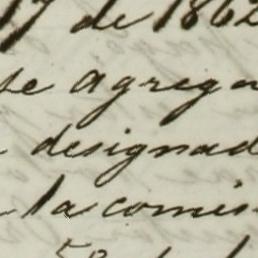 17 de 1862
se agrega
designad
la comis